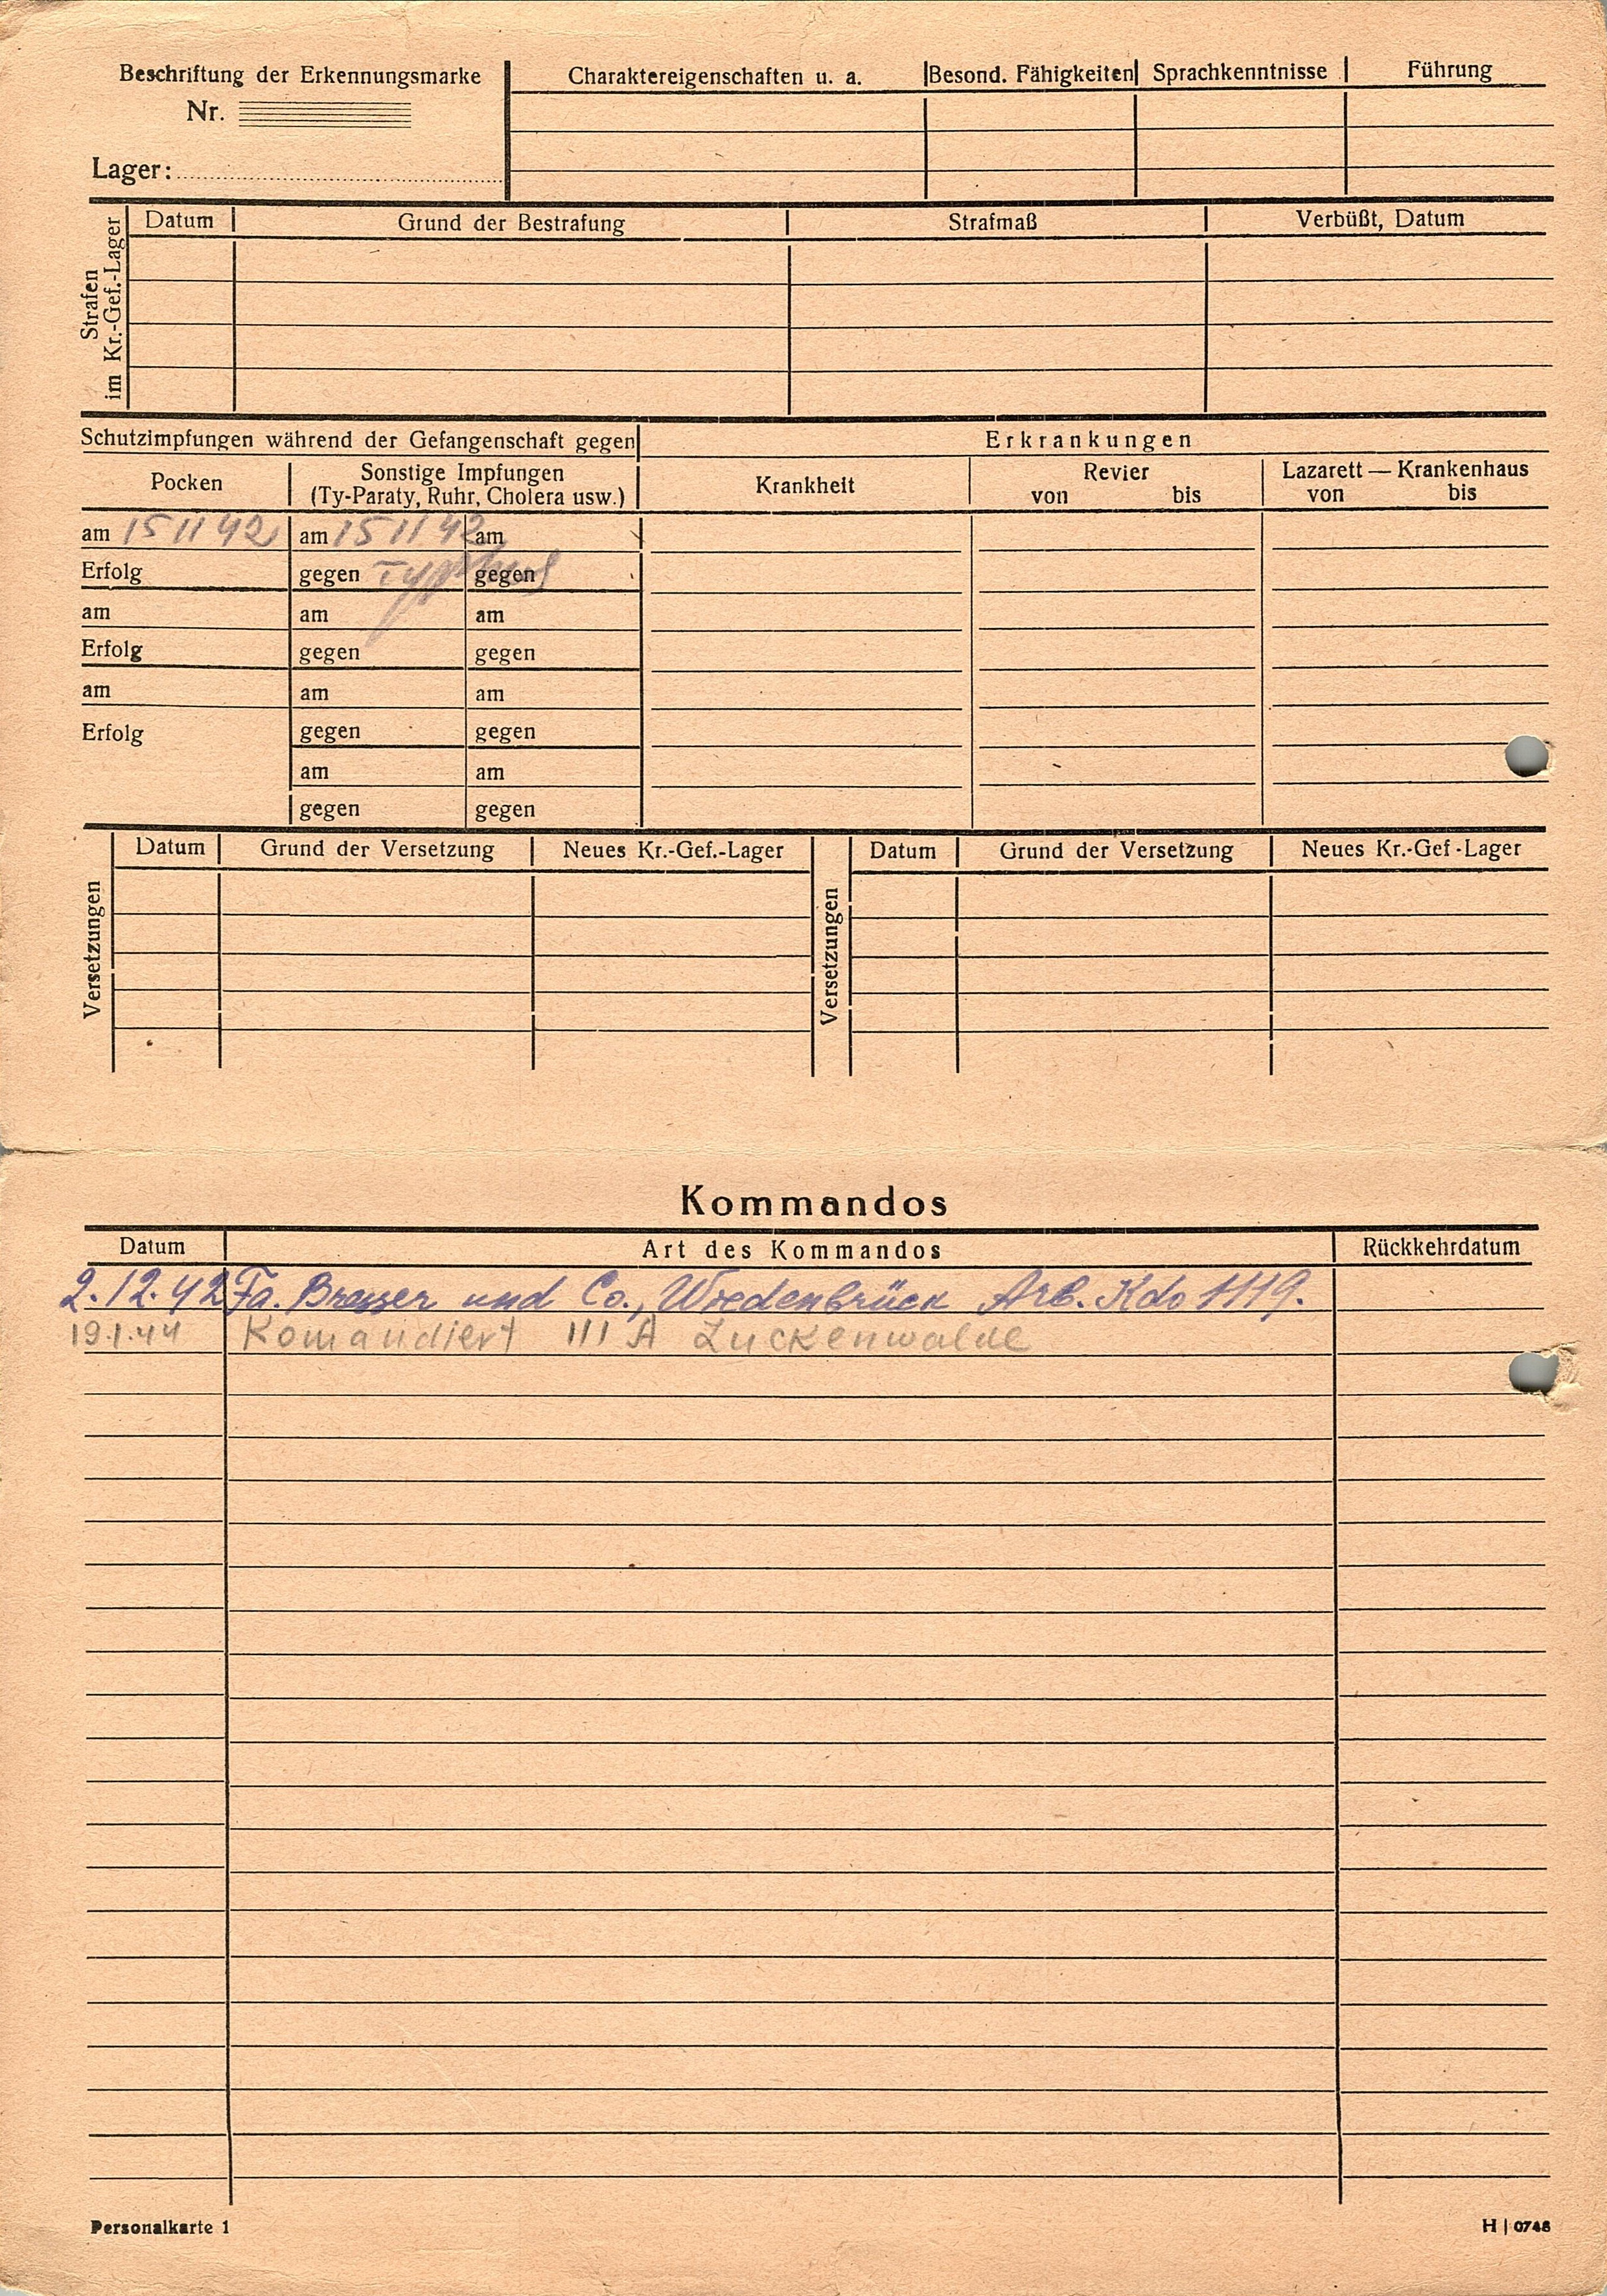 Beschriftung der Erkennungsmarke
Nr.
Lager:
Charaktereigenschaften u. a. Besond. Fähigkeiten Sprachkenntnisse Führung
Strafen im Kr.-Gef.-Lager
Datum Grund der Bestrafung Strafmaß Verbüßt, Datum
Schutzimpfungen während der Gefangenschaft gegen Erkrankungen
Pocken Sonstige Impfungen (Ty-Paraty, Ruhr, Cholera usw.) Krankheit Revier von bis Lazarett — Krankenhaus von bis
am 15 11 42 am 15 11 42 am
Erfolg gegen Typhus gegen
am am am
Erfolg gegen gegen
am am am
Erfolg gegen gegen
am am
gegen gegen
Versetzungen
Datum Grund der Versetzung Neues Kr.-Gef.-Lager
Versetzungen
Datum Grund der Versetzung Neues Kr.-Gef-Lager
Kommandos
Datum Art des Kommandos Rückkehrdatum
2.12.42 Fa. und Co., Wiedenbrück Arb. Kdo 1119.
19.1.44 Komandiert III A Luckenwalde
Personalkarte 1
H | 0748